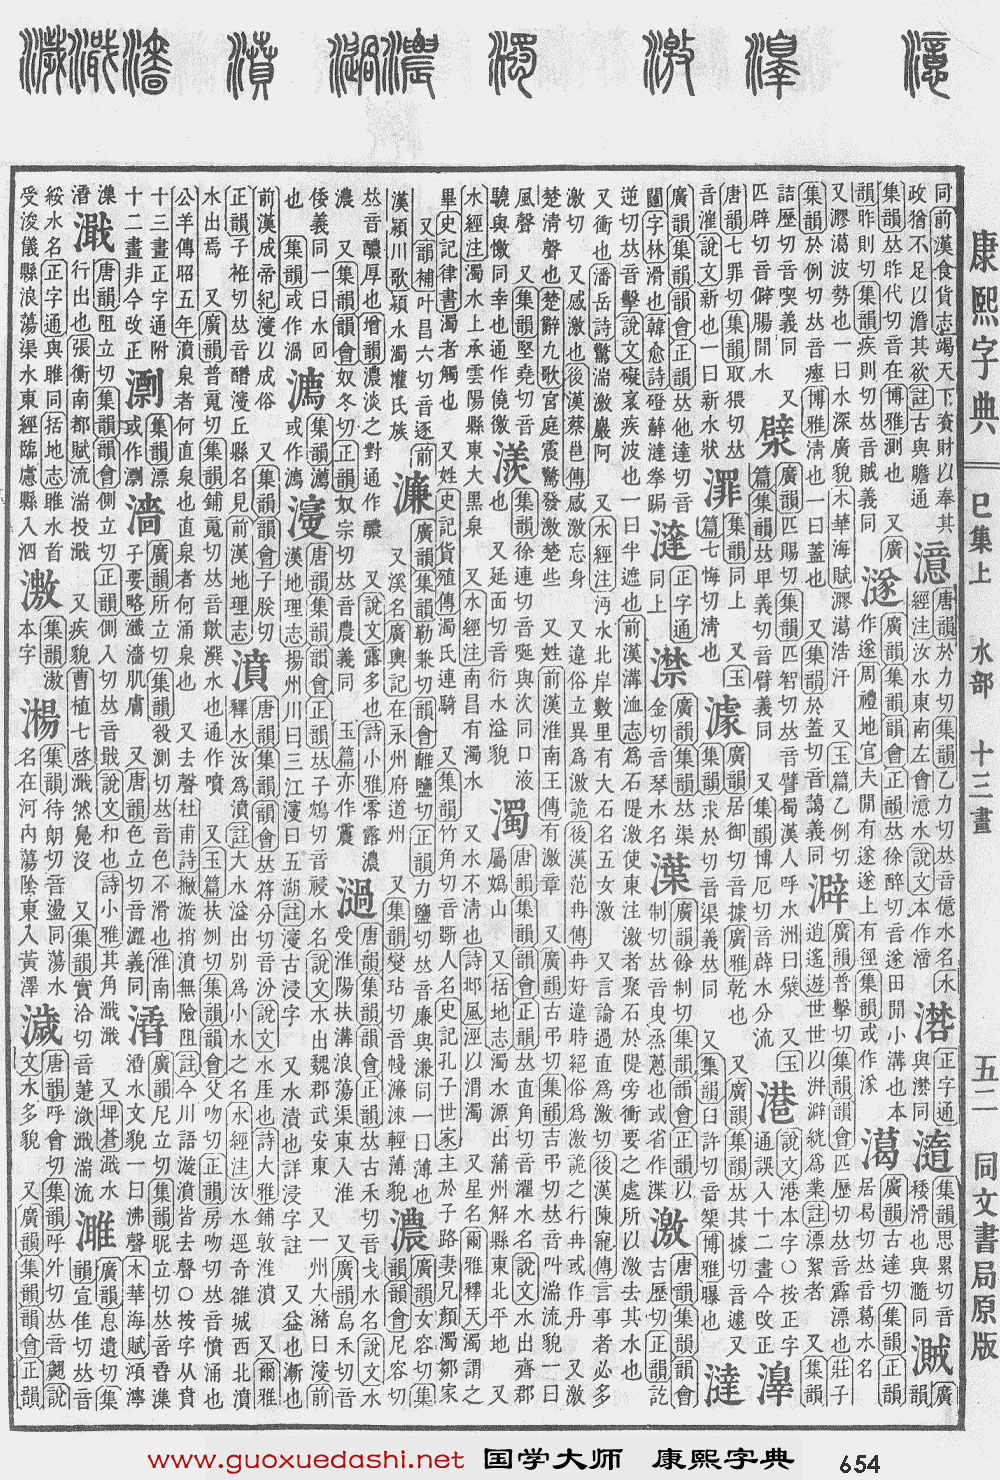 康熙字典 巳集上 水部 十三畫 五二 同文書局原版
同前漢食貨志竭天下資財以奉其
政猶不足以澹其欲註古與瞻通
澺
唐韻於力切集韻乙力切𠀤音億水名水
經注汝水東南左會澺水說文本作
正字通
與濋同
瀡
集韻思累切音
髓滑也與瀡同
廣韻
集韻𠀤昨代切音在博雅測也 又廣
韻昨則切集韻疾則切𠀤音賊義同
澻
廣韻集韻韻會正韻𠀤徐醉切音遂田閒小溝也本
作遂周禮地官夫閒有遂遂上有徑集韻或作㒸
濄
廣韻古達切集韻正韻
居曷切𠀤音葛水名
又漻濄波勢也一曰水深廣貌木華海賦漻濄浩汗 又玉篇乙例切
集韻於例切𠀤音瘞博雅淸也一曰蓋也 又集韻於蓋切音藹義同
澼
廣韻普擊切集韻韻會匹歷切𠀤音霹漂也莊子
逍遙遊世世以洴澼絖爲業註漂絮者 又集韻
詰歷切音喫義同 又
匹辟切音僻腸閒水
廣韻匹賜切集韻匹智切𠀤音譬蜀漢人呼水洲曰檗 又玉
篇集韻𠀤甲義切音臂義同 又集韻博厄切音薜水分流
港
說文港本字○按正字
通誤入十二畫今改正
唐韻七罪切集韻取猥切𠀤
音漼說文新也一曰新水狀
集韻同上 又玉
篇七悔切淸也
澽
廣韻居御切音據廣雅乾也 又廣韻集韻𠀤其據切音遽又
集韻求於切音渠義𠀤同 又集韻臼許切音榘博雅曝也
澾
廣韻集韻韻會正韻𠀤他達切音
闥字林滑也韓愈詩磴蘚澾拳跼
正字通
同上
澿
廣韻集韻𠀤渠
金切音琴水名
廣韻餘制切集韻韻會正韻以
制切𠀤音曳水名
激
唐韻集韻韻會
吉歷切正韻訖
逆切𠀤音擊說文礙衺疾波也一曰半遮也前漢溝洫志爲石隄激使東注激者聚石於隄旁衝要之處所以激去其水也
又衝也潘岳詩驚湍激巖阿 又水經注沔水北岸數里有大石名五女激 又言論過直爲激切後漢陳寵傳言事者必多
激切 又感激也後漢蔡邕傳感激忘身 又違俗立異爲激詭後漢范冉傳冉好違時絕俗爲激詭之行冉或作丹 又激
楚淸聲也楚辭九歌宮庭震驚發激楚些 又姓前漢淮南王傳有激章 又廣韻古弔切集韻吉弔切𠀤音叫湍流貌一曰
風聲 又集韻堅堯切音
驍與憿同幸也通作僥徼
羕
集韻徐連切音涎與次同口液
也 又延面切音衍水溢貌
濁
唐韻集韻韻會正韻𠀤直角切音濯水名說文水出齊郡
厲嬀山 又括地志濁水源出蒲州解縣東北平地 又
水經注濁水上承雲陽縣東大黑泉 又水經注南昌有濁水 又水不淸也詩邶風涇以渭濁 又星名爾雅釋天濁謂之
畢史記律書濁者觸也 又姓史記貨殖傳濁氏連騎 又集韻竹角切音斲人名史記孔子世家主於子路妻兄顏濁鄒家
又韻補叶昌六切音逐前
漢潁川歌潁水濁灌氏族
濂
廣韻集韻勒兼切韻會離鹽切正韻力鹽切𠀤音廉與溓同一曰薄也
又溪名廣輿記在永州府道州 又集韻燮玷切音㡘濂涑輕薄貌
濃
廣韻女容切集
韻韻會尼容切
𠀤音醲厚也增韻濃淡之對通作醲 又說文露多也詩小雅零露濃
濃 又集韻韻會奴冬切正韻奴宗切𠀤音農義同 玉篇亦作䢉
濄
唐韻集韻韻會正韻𠀤古禾切音戈水名說文水
受淮陽扶溝浪蕩渠東入淮 又廣韻烏禾切音
倭義同一曰水回
也 集韻或作渦
集韻瀉
或作㵯
濅
唐韻集韻韻會正韻𠀤子鴆切音祲水名說文水出魏郡武安東 又一州大澤曰濅前
漢地理志揚州川曰三江濅曰五湖註濅古浸字 又水漬也詳浸字註 又益也漸也
前漢成帝紀濅以成俗 又集韻韻會子朕切
正韻子袵切𠀤音醋濅丘縣名見前漢地理志
濆
唐韻集韻韻會𠀤符分切音汾說文水厓也詩大雅鋪敦淮濆 又爾雅
釋水汝爲濆註大水溢出別爲小水之名水經注汝水逕奇雒城西北濆
水出焉 又廣韻普䰟切集韻鋪䰟切𠀤音歕潠水也通作噴 又玉篇扶刎切集韻韻會父吻切正韻房吻切𠀤音憤涌也
公羊傳昭五年濆泉者何直泉也直泉者何涌泉也 又去聲杜甫詩撇漩捎濆無險阻註今川語漩濆皆去聲○按字从賁
十三畫正字通附
十二畫非今改正
集韻漂
或作㶾
濇
廣韻所立切集韻殺測切𠀤音色不滑也淮南
子要略濈濇肌膚 又唐韻色立切音澀義同
濳
廣韻尼立切集韻昵立切𠀤音㚔湒
濳水文貌一曰沸聲木華海賦澒濘
濳
濈
唐韻阻立切集韻韻會側立切正韻側入切𠀤音戢說文和也詩小雅其角濈濈 又埤蒼濈水
行出也張衡南都賦流湍投濈 又疾貌曹植七啓濈然鳧沒 又集韻實洽切音萐㴙濈湍流
濉
廣韻息遺切集
韻宣隹切𠀤音
綏水名正字通與睢同括地志睢水首
受浚儀縣浪蕩渠水東經臨慮縣入泗
集韻㵿
本字
集韻待朗切音盪同蕩水
名在河內蕩陰東入黃澤
濊
唐韻呼會切集韻呼外切𠀤音翽說
文水多貌 又廣韻集韻韻會正韻
www.guoxuedashi.net 国学大师 康熙字典 654